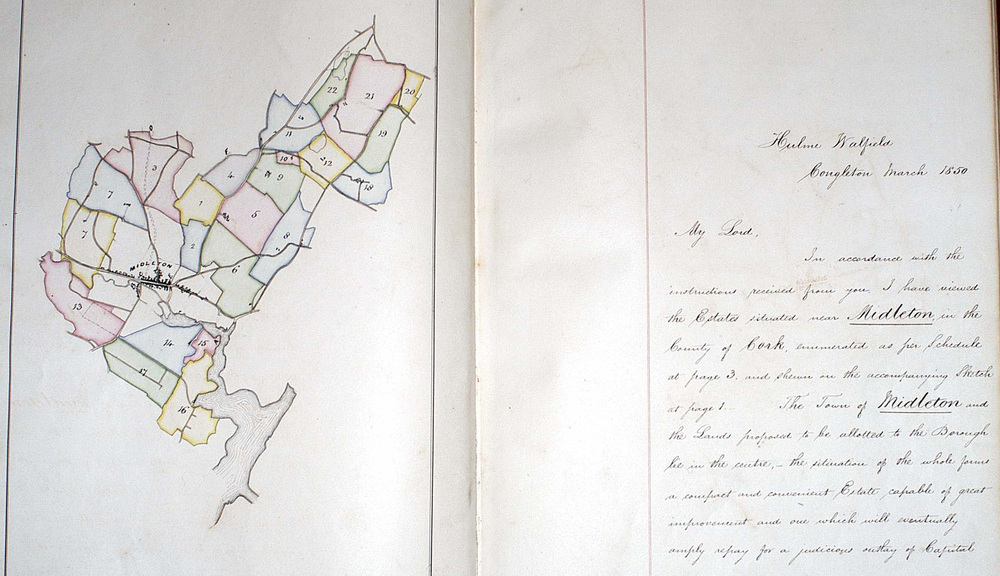 22
21
20
4
11
19
10
12
3
4
9
18
7
1
5
2
8
7
6
MIDLETON
13
14
15
17
16
Hulme Walfield
Congleton March 1850
My Lord,
In accordance with the
instructions received from you, I have viewed
the Estates situated near Midleton, in the
County of Cork, enumerated as per Schedule
at page 3. and shewn on the accompanying Sketch
at page 1. The Town of Midleton and
the Lands proposed to be allotted to the Borough
lie in the centre, – the situation of the whole forms
a compact and convenient Estate capable of great
improvement and one which will eventually
amply repay for a judicious outlay of Capital